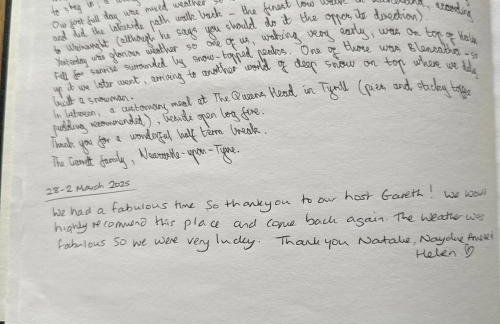 to stay in, a
Our first full day was mixed weather so
and did the lakeside path walk back - the finest low walk in Lakeland, according
to Wainwright (although he says you should do it the opposite direction).
Yesterday was glorious weather so one of us, waking very early, was on top of
Fell for sunrise surrounded by snow-topped peaks. One of those was Blencathra - so
up it we later went, arriving to another world of deep snow on top where we
built a snowman.
In between, a customary meal at The Queens Head in Tirril (pies and sticky toffee
pudding recommended), beside open log fire.
Thank you for a wonderful half term break.
The family, Newcastle-upon-Tyne.
28-2 March 2025
We had a fabulous time So thankyou to our host Gareth! We would
highly recommend this place and come back again. The weather was
fabulous So we were very lucky. Thank you Natalie,
Helen ♡